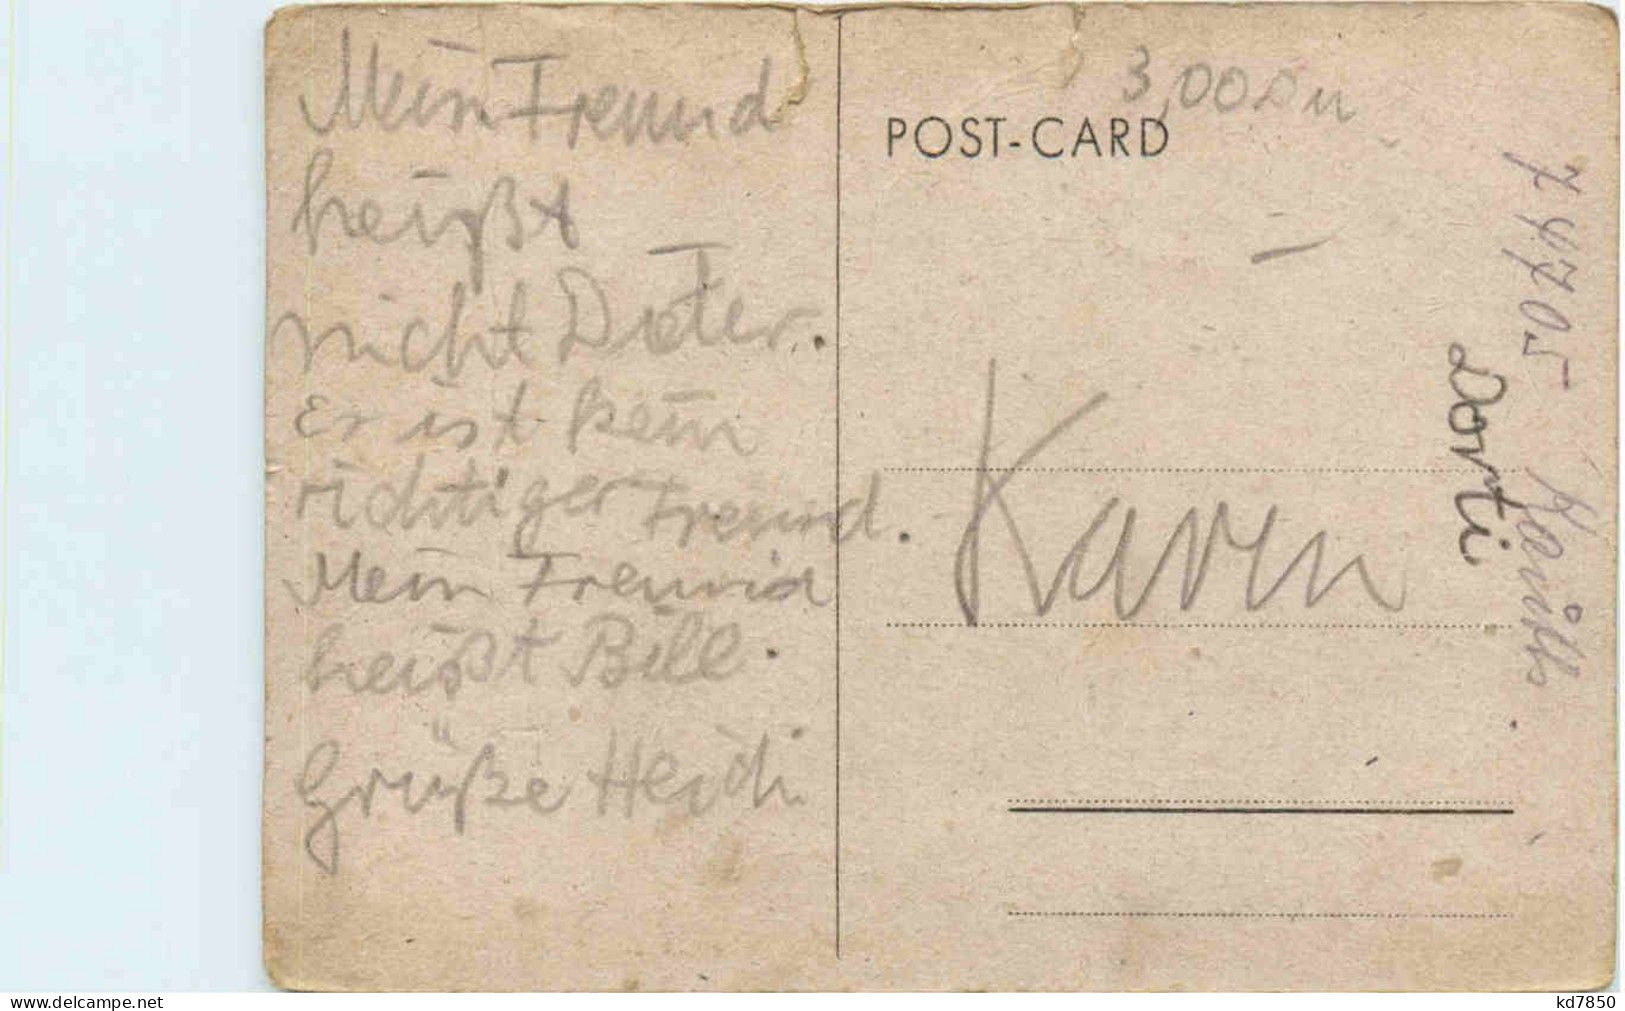 Mein Freund
heißt
nicht Dieter.
Er ist kein
richtiger Freund.
Mein Freund
heißt Bill.
Grüße Heidi
3,00
POST-CARD
Karin
Dorti
delcampe.net
kd7850